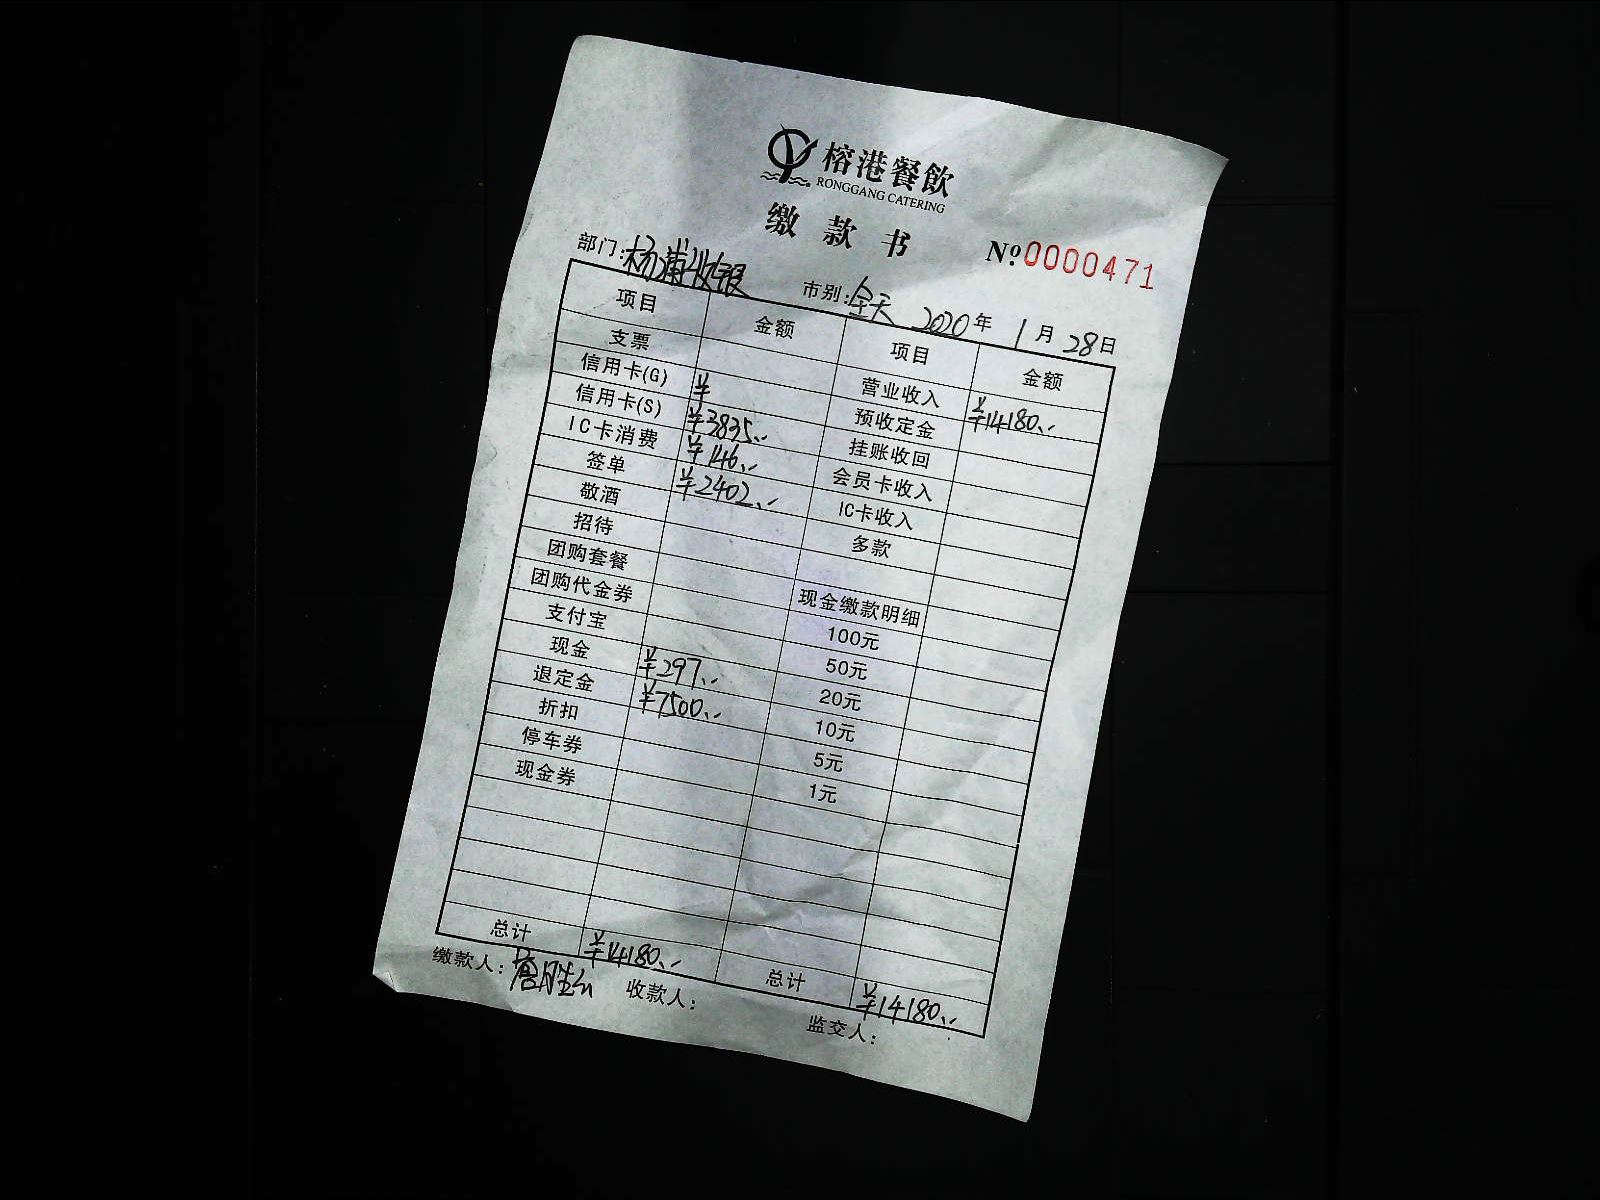 榕港餐飲
RONGGANG CATERING
缴款书
№0000471
部门:杨浦收银 市别:全天 2020年1月28日
项目 金额 项目 金额
支票 营业收入 ¥14180.-
信用卡(G) ¥ 预收定金
信用卡(S) ¥3835.- 挂账收回
IC卡消费 ¥146.- 会员卡收入
签单 ¥2402.- IC卡收入
敬酒 多款
招待
团购套餐 现金缴款明细
团购代金券 100元
支付宝 50元
现金 ¥297.- 20元
退定金 ¥7500.- 10元
折扣 5元
停车券 1元
现金券
总计 ¥14180.- 总计 ¥14180.-
缴款人: 收款人: 监交人: